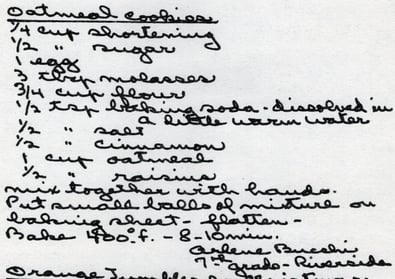 Oatmeal Cookies
1/4 cup shortening
1/2 " sugar
1 egg
3 tbsp molasses
3/4 cup flour
1/2 tsp baking soda - dissolved in
a little warm water
1/2 " salt
1/2 " cinnamon
1 cup oatmeal
1/2 " raisins
mix together with hands.
Put small balls of mixture on
baking sheet - flatten -
Bake 400° f. - 8-10 min.
Arlene Bucchi
7th grade - Riverside
Orange